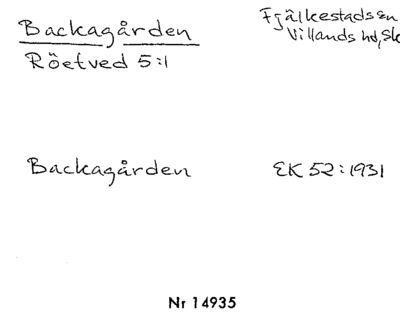 Backagården
Röetved 5:1
Fjälkestads sn
Villands hd, Sk
Backagården
EK 52:1931
Nr 14935